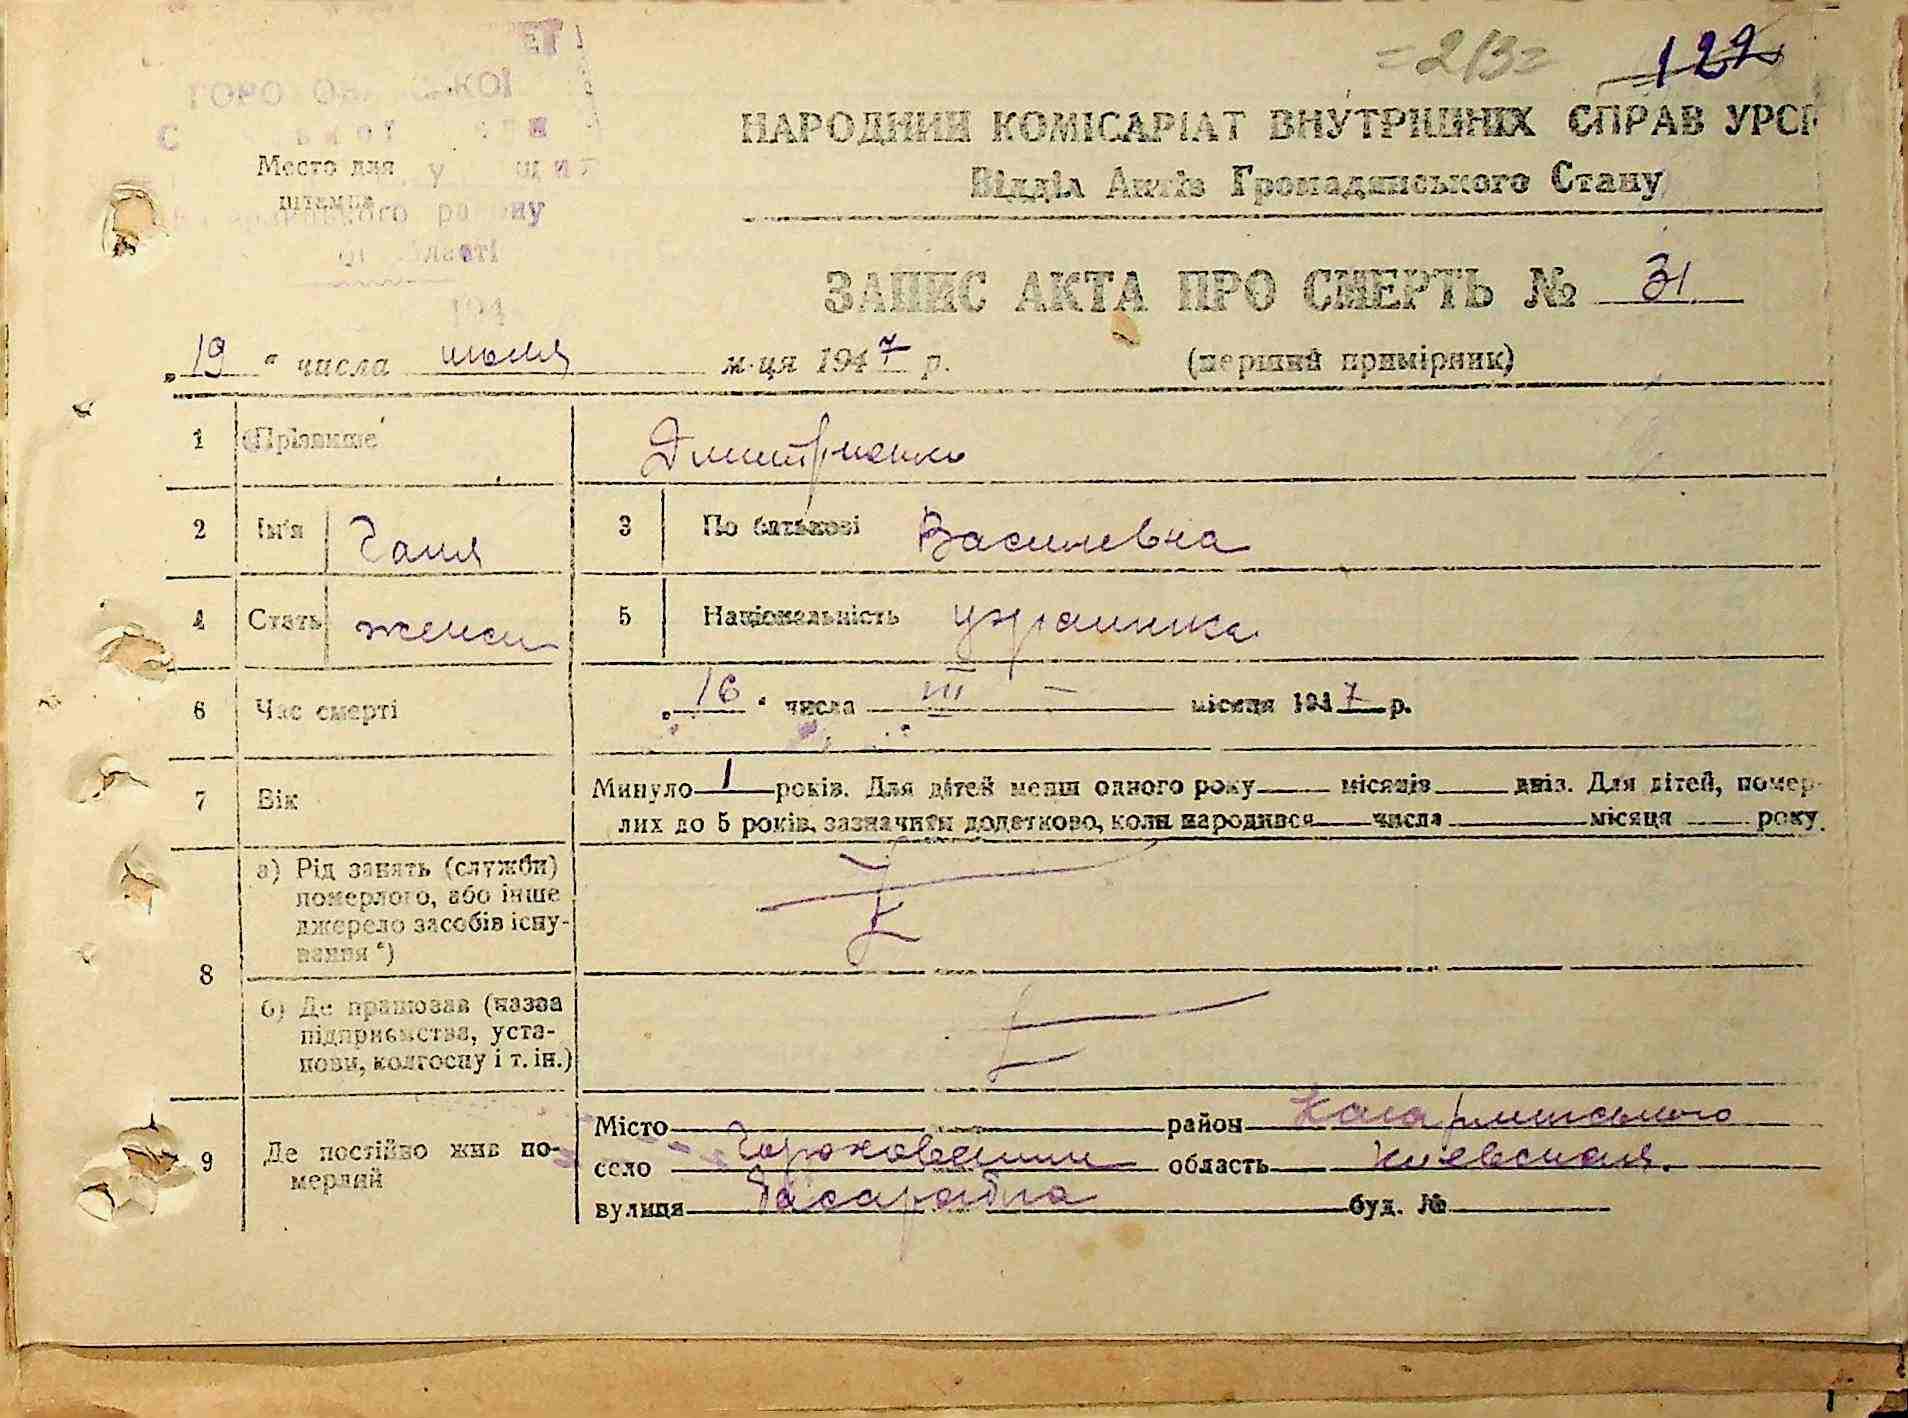 =213= 122
НАРОДНИЙ КОМІСАРІАТ ВНУТРІШНІХ СПРАВ УРСР
Відділ Актів Громадянського Стану
Место для
штампа
району
області
194
ЗАПИС АКТА ПРО СМЕРТЬ № 31
„19“ числа июня м-ця 1947 р. (перший примірник)
1 Прізвище Дмитриенко
2 Ім'я Галя 3 По батькові Василевна
4 Стать женск 5 Національність украинка
6 Час смерті „16“ числа III місяця 1947 р.
7 Вік Минуло 1 років. Для дітей менш одного року місяців днів. Для дітей, помер-
лих до 5 років, зазначити додатково, коли народився числа місяця року
8 а) Рід занять (служби)
померлого, або інше
джерело засобів існу-
вання *)
б) Де працював (назва
підприємства, уста-
нови, колгоспу і т. ін.)
9 Де постійно жив по-
мерлий
Місто район Кагарлинського
село Гороховатни область Киевская
вулиця буд. №